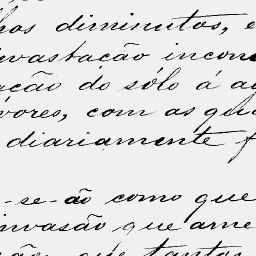 hos diminutos, e
evastação incon
ação do sólo á a
vores, com as qu
diariamente f
-se-ão como que
invasão que ame
ção, que tantos